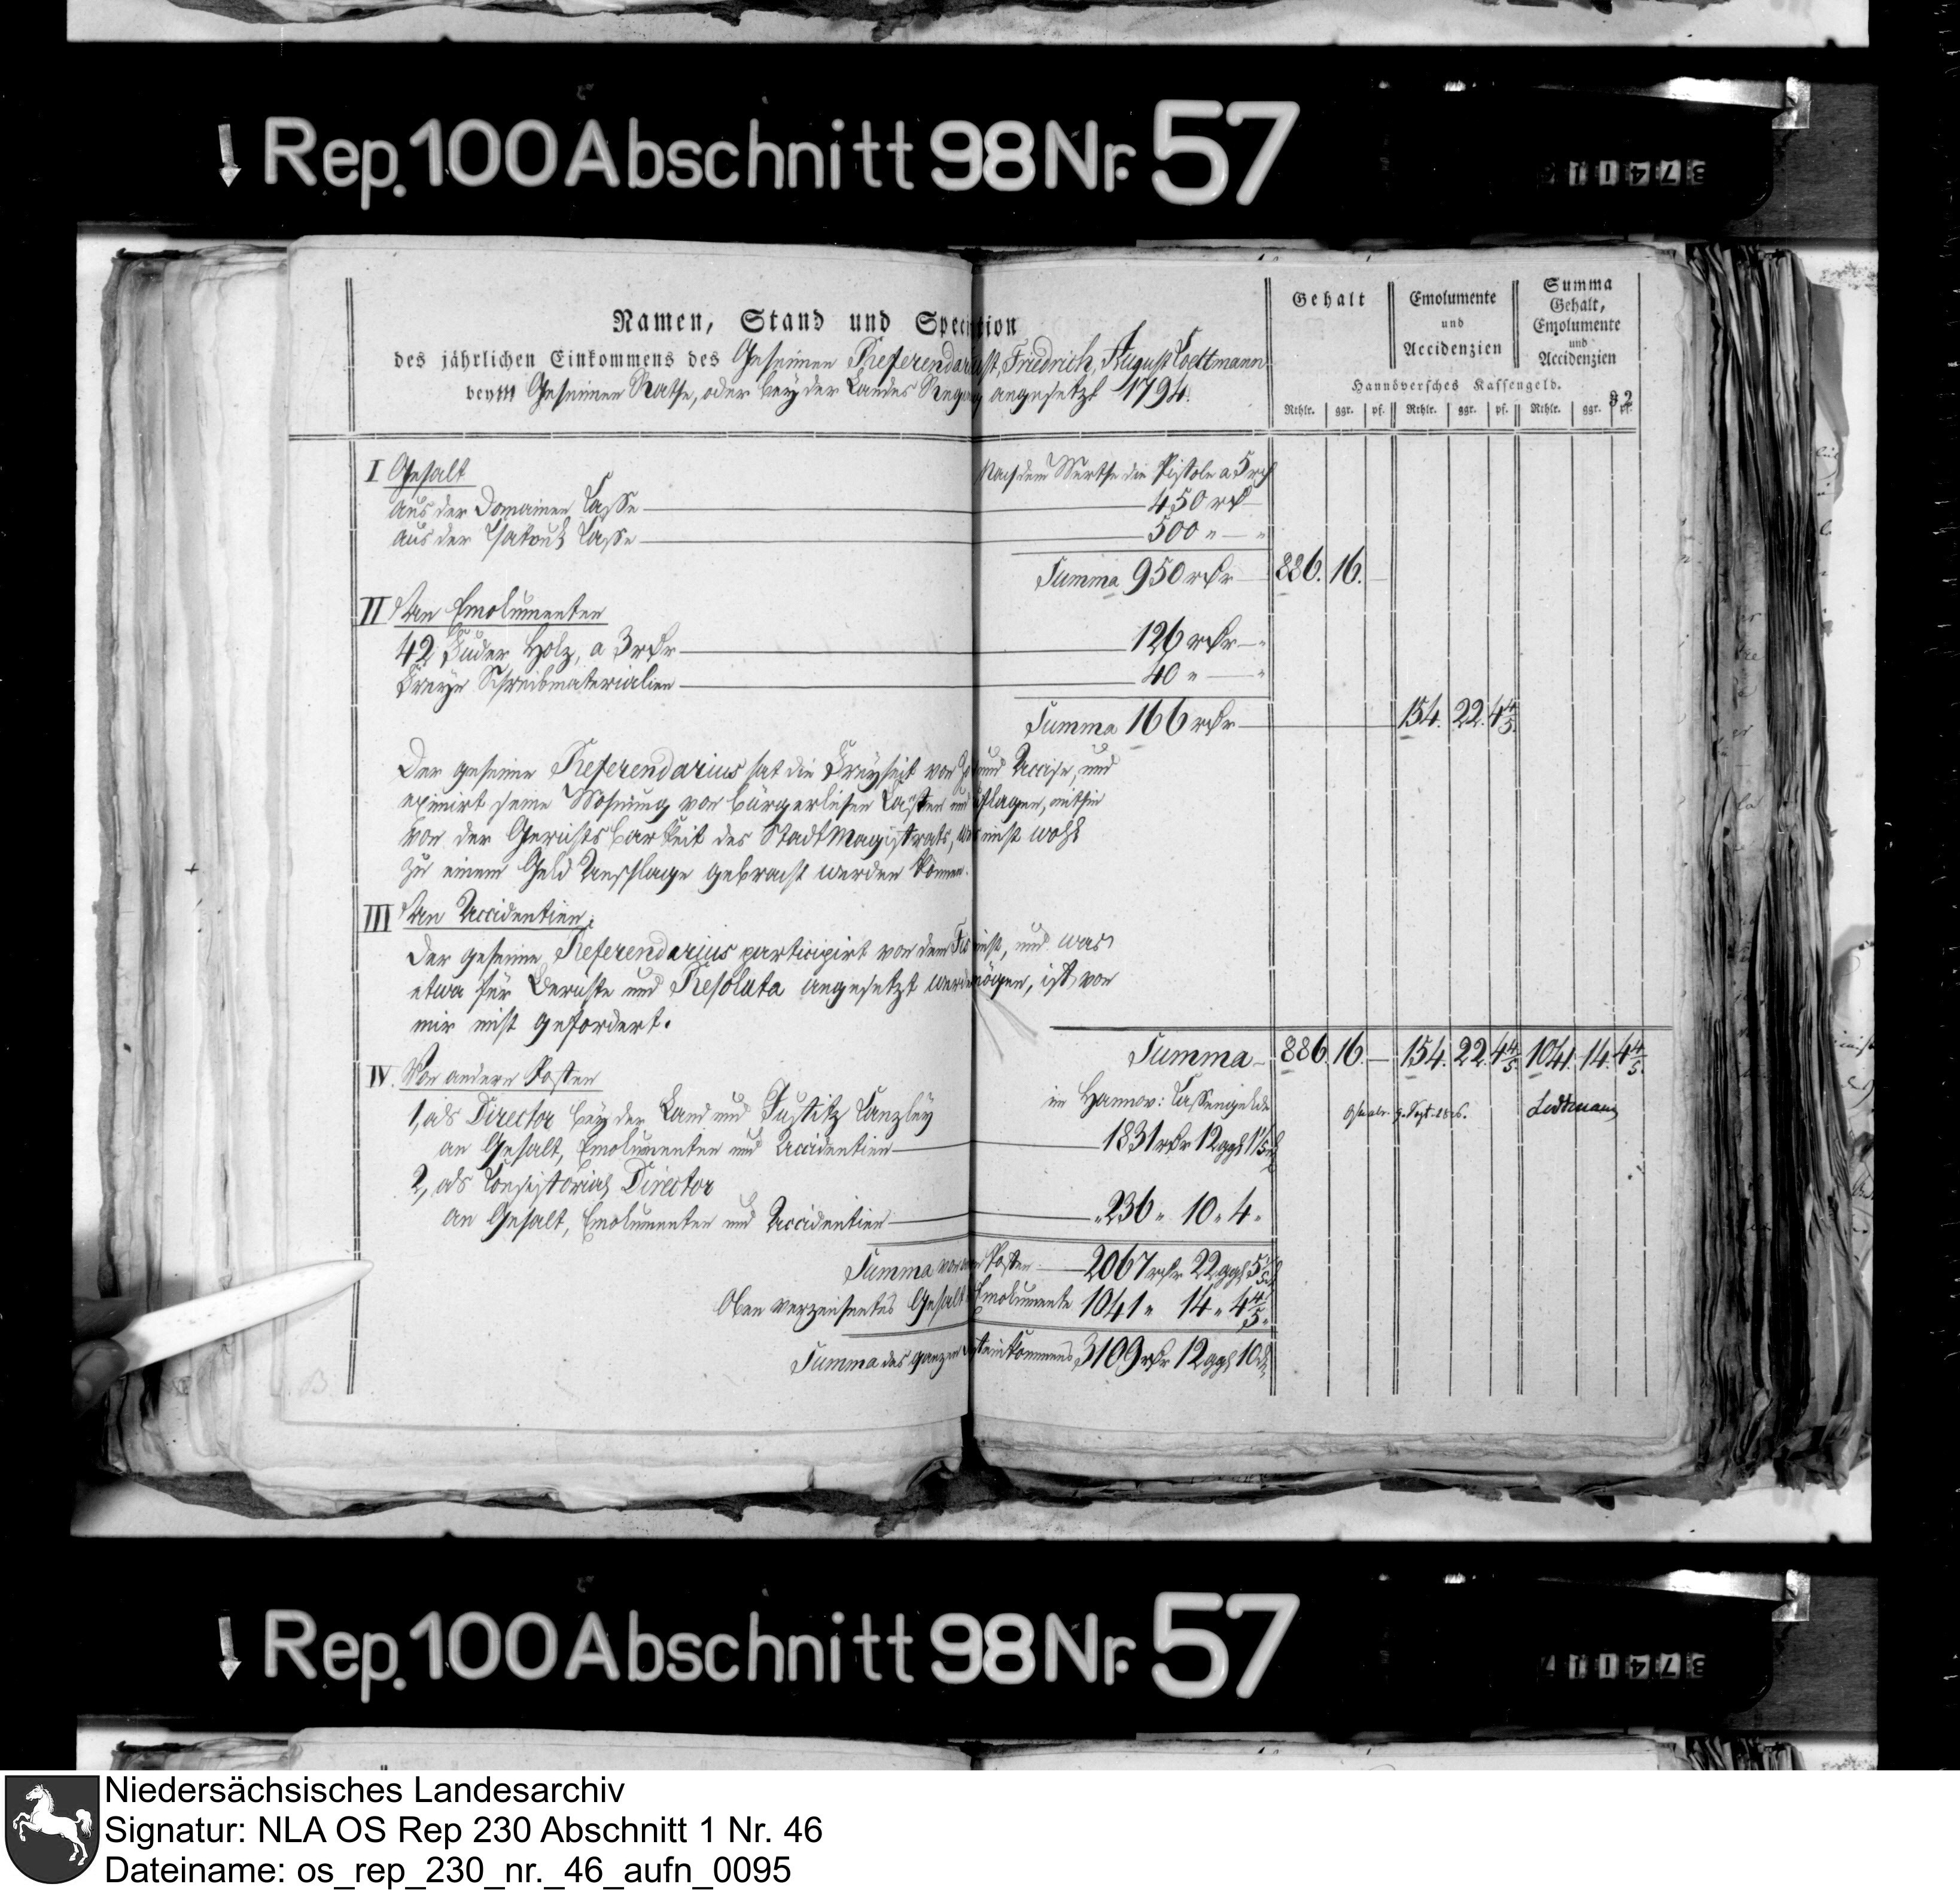 Rep. 100 Abschnitt 98 Nr. 57
Namen, Stand und
des jährlichen Einkommens des Geheimen Friedrich, August
beym Geheimen Rathe, oder bey der Landes angesetzt 1794.
Gehalt
Emolumente
und
Accidenzien
Summa
Gehalt,
Emolumente
und
Accidenzien
Hannöversches Kassengeld.
32
Rthlr. ggr. pf. Rthlr. ggr. pf. Rthlr. ggr. pf.
I Gehalt
Nach dem Werthe die Pistole a 5 rthlr
aus der Domainen Casse 450 rthlr
aus der Casse 500 "
Summa 950 rthlr 886. 16. —
II An Emolumenten
42 Fuder Holz, a 3 rthlr 126 rthlr
Freye Schreibmaterialien 40 "
Summa 166 rthlr 154. 22. 4 4/5
Der geheime Referendarius hat die Freyheit von und Accise, und
eximirt seine Wohnung von bürgerlichen Lasten und mithin
von der Gerichtsbarkeit des Stadt Magistrats, nicht wohl
zu einem Geld Anschlage gebracht werden können.
III An Accidentien.
Der geheime Referendarius participirt von dem nicht, und was
etwa für Berichte und Resoluta angesetzt werden mögen, ist von
mir nicht gefordert.
Summa 886. 16. — 154. 22. 4 4/5 1041. 14. 4 4/5
IV. Von andern Posten
im Hannov: Cassengelde
1, als Director bey der Land und Justitz Canzley
an Gehalt, Emolumenten und Accidentien 1831 rthlr 12 ggl 1 1/5
2, als Consistorial Director
an Gehalt, Emolumenten und Accidentien 236 " 10 " 4 "
Summa von Posten 2067 rthlr 22 ggl 5 1/5
Oben verzeichnetes Gehalt Emolumente 1041 " 14 " 4 4/5
Summa des ganzen 3109 rthlr 12 ggl 10
Rep. 100 Abschnitt 98 Nr. 57
Niedersächsisches Landesarchiv
Signatur: NLA OS Rep 230 Abschnitt 1 Nr. 46
Dateiname: os_rep_230_nr._46_aufn_0095